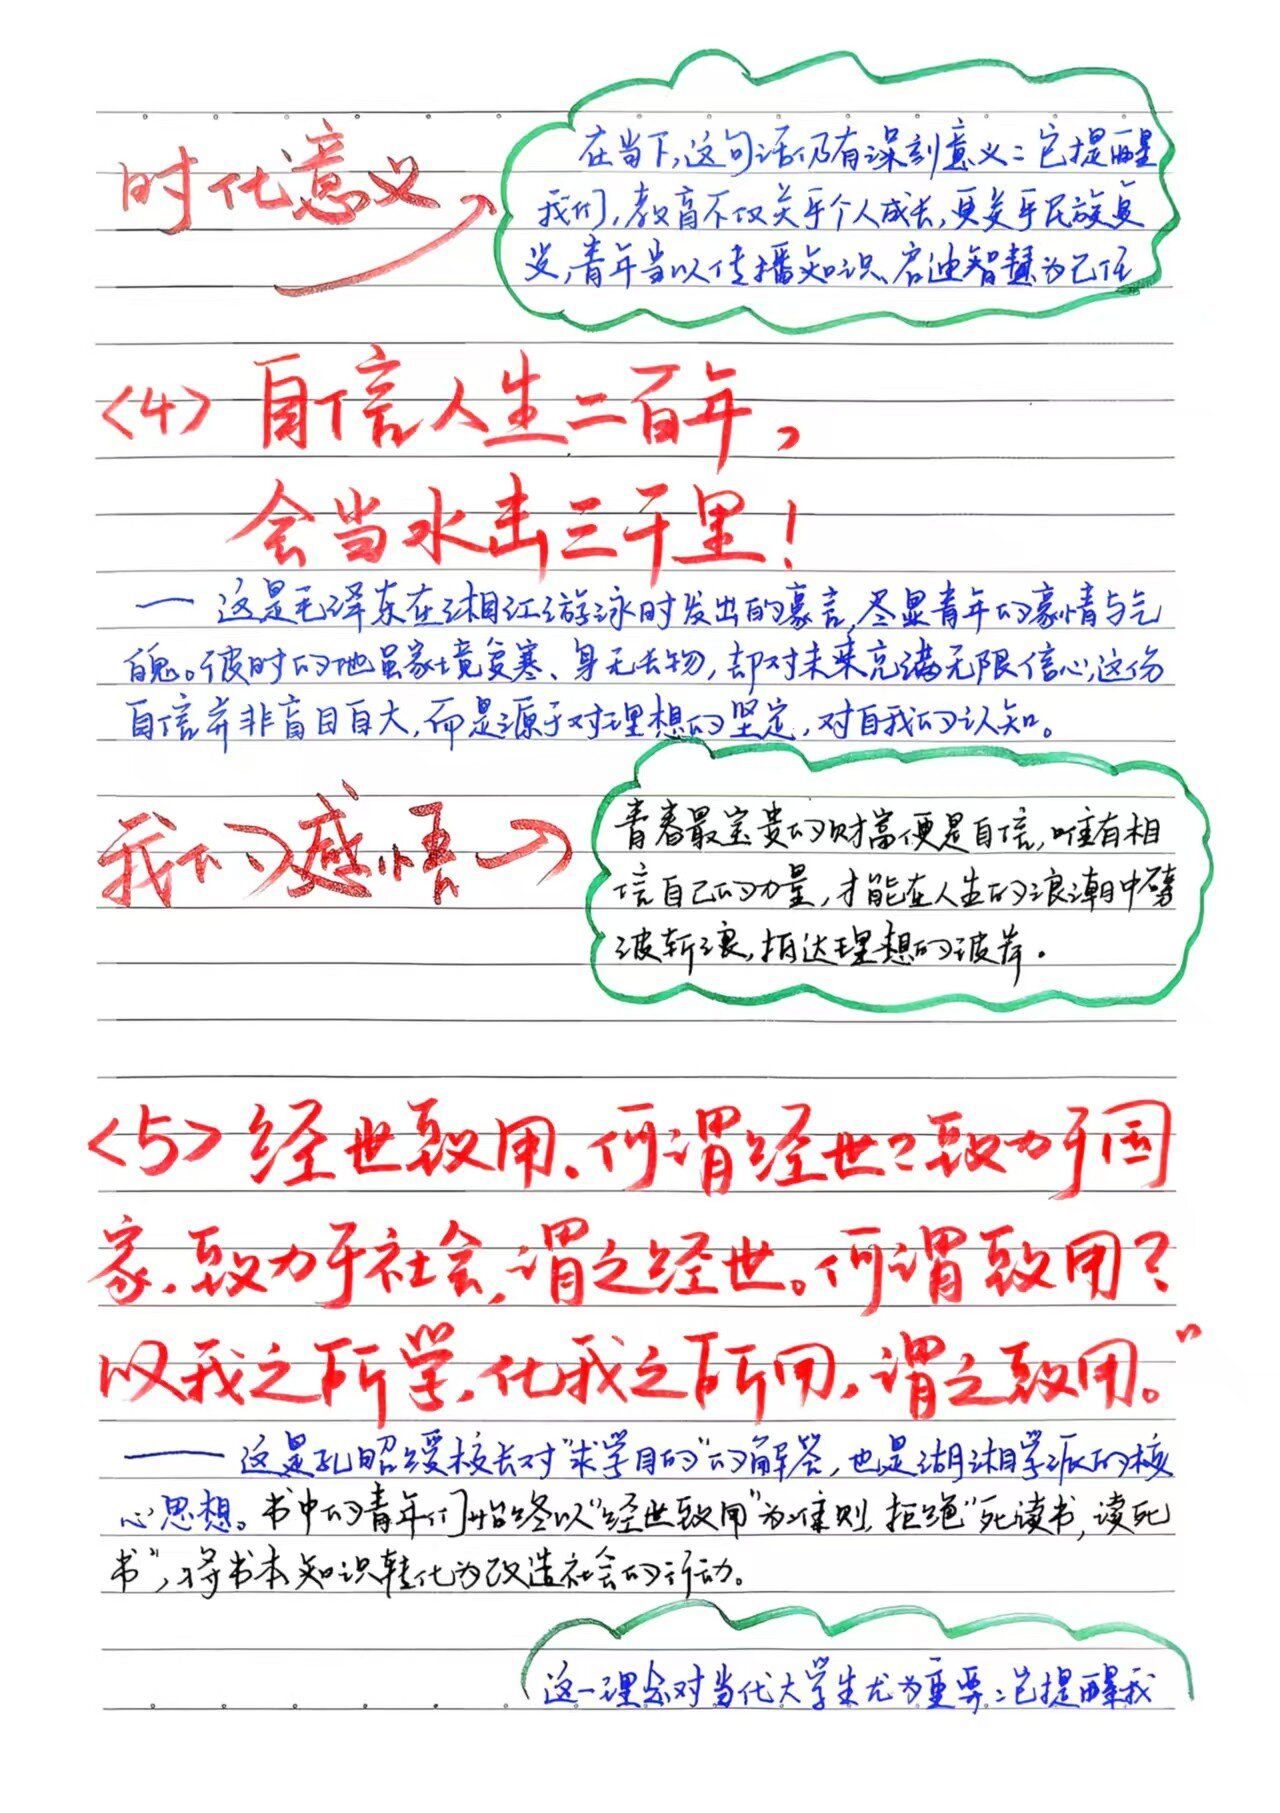 时代意义
在当下,这句话仍有深刻意义:它提醒
我们,教育不仅关乎个人成长,更关乎民族复
兴,青年当以传播知识、启迪智慧为己任
<4> 自信人生二百年,
会当水击三千里!
— 这是毛泽东在湘江游泳时发出的豪言,尽显青年的豪情与气
魄。彼时的他虽家境贫寒、身无长物,却对未来充满无限信心,这份
自信并非盲目自大,而是源于对理想的坚定,对自我的认知。
我的感悟
青春最宝贵的财富便是自信,唯有相
信自己的力量,才能在人生的浪潮中劈
波斩浪,抵达理想的彼岸。
<5> 经世致用、何谓经世?致力于国
家,致力于社会,谓之经世。何谓致用?
以我之所学,化我之所用,谓之致用。”
—— 这是孔昭绶校长对“求学目的”的解答,也是湖湘学派的核
心思想。书中的青年们始终以“经世致用”为准则,拒绝“死读书,读死
书”,将书本知识转化为改造社会的行动。
这一理念对当代大学生尤为重要:它提醒我